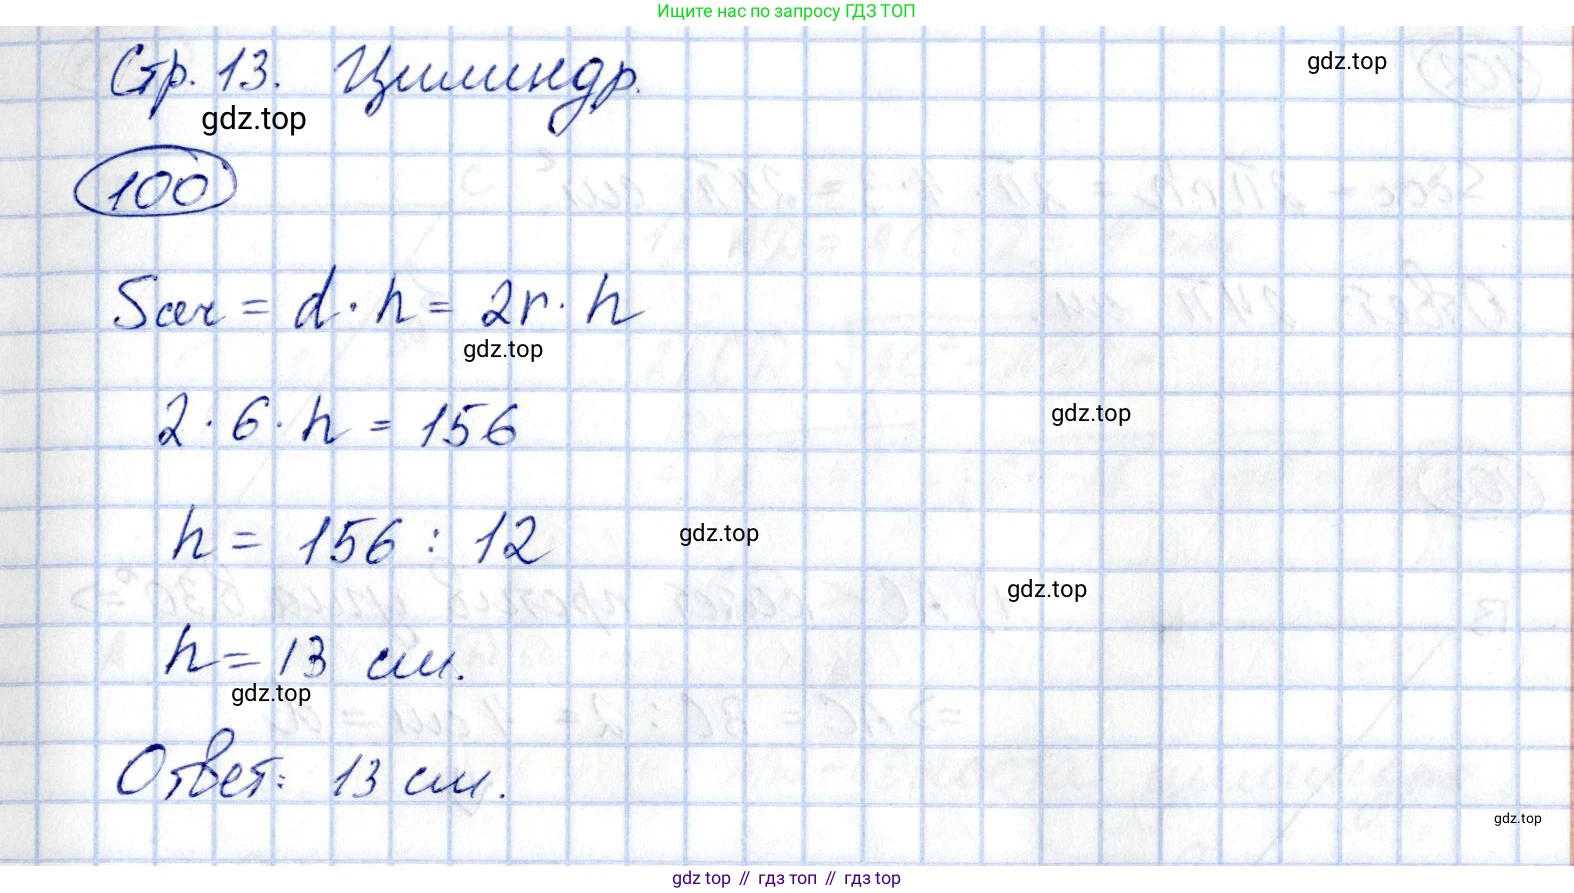 Ищите нас по запросу ГДЗ ТОП
Стр. 13. Цилиндр.
gdz.top
gdz.top
100
Sсеч = d · h = 2r · h
gdz.top
2 · 6 · h = 156
gdz.top
h = 156 : 12
gdz.top
gdz.top
h = 13 см.
gdz.top
Ответ: 13 см.
gdz.top
gdz.top // гдз топ // гдз top